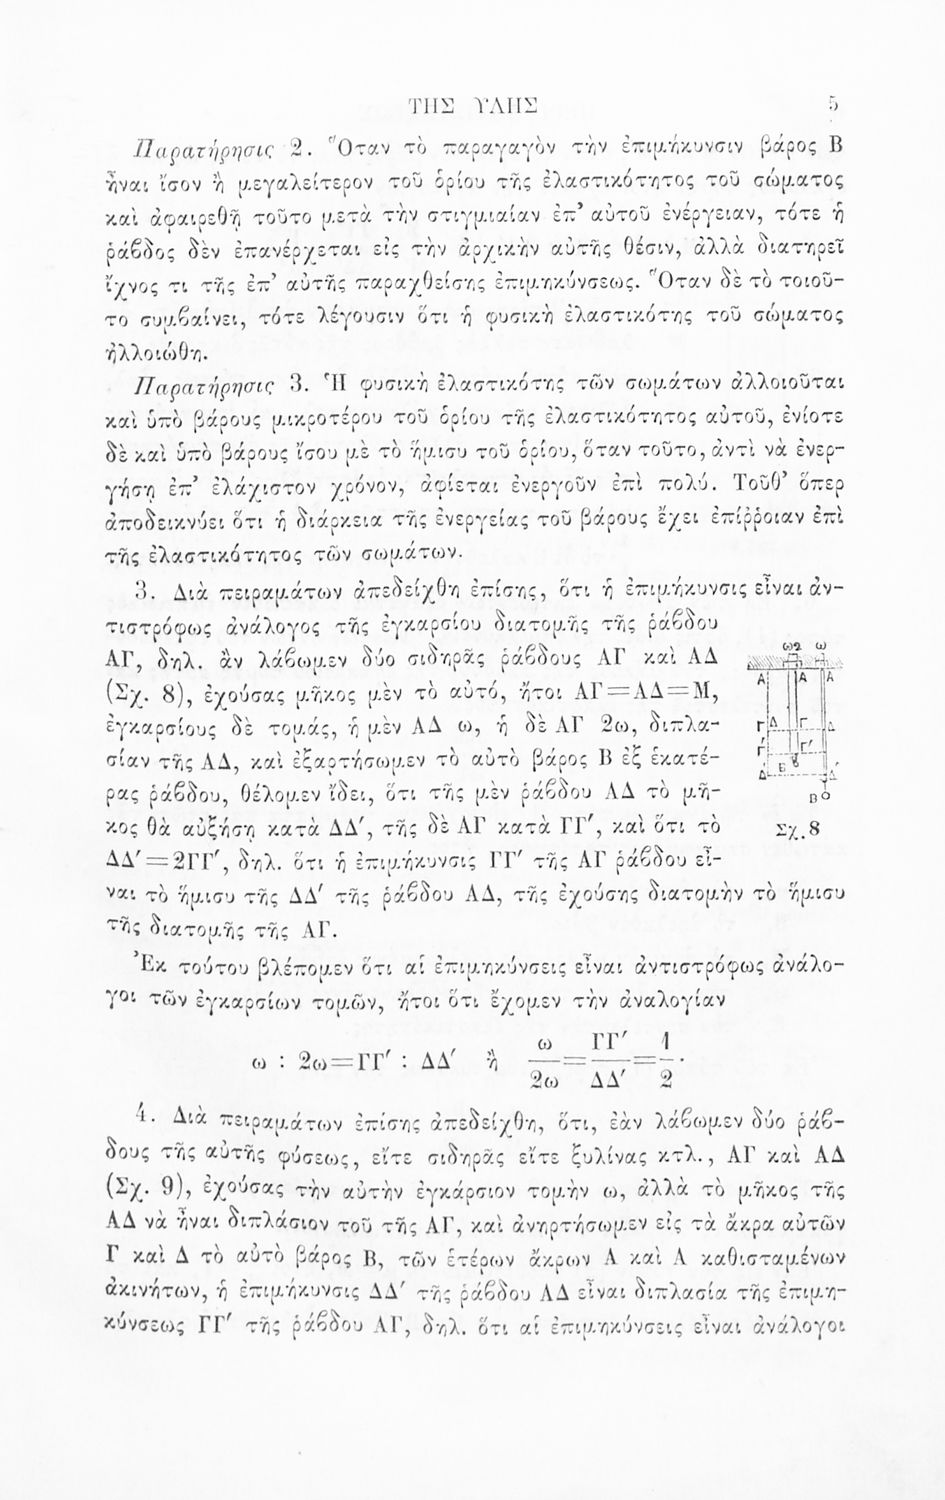 ΤΗΣ ΥΛΗΣ 5
Παρατήρησις 2. Ὅταν τὸ παραγαγὸν τὴν ἐπιμήκυνσιν βάρος Β
ἦναι ἴσον ἢ μεγαλείτερον τοῦ ὁρίου τῆς ἐλαστικότητος τοῦ σώματος
καὶ ἀφαιρεθῇ τοῦτο μετὰ τὴν στιγμιαίαν ἐπ’ αὐτοῦ ἐνέργειαν, τότε ἡ
ῥάβδος δὲν ἐπανέρχεται εἰς τὴν ἀρχικὴν αὐτῆς θέσιν, ἀλλὰ διατηρεῖ
ἴχνος τι τῆς ἐπ’ αὐτῆς παραχθείσης ἐπιμηκύνσεως. Ὅταν δὲ τὸ τοιοῦ-
το συμβαίνει, τότε λέγουσιν ὅτι ἡ φυσικὴ ἐλαστικότης τοῦ σώματος
ἠλλοιώθη.
Παρατήρησις 3. Ἡ φυσικὴ ἐλαστικότης τῶν σωμάτων ἀλλοιοῦται
καὶ ὑπὸ βάρους μικροτέρου τοῦ ὁρίου τῆς ἐλαστικότητος αὐτοῦ, ἐνίοτε
δὲ καὶ ὑπὸ βάρους ἴσου μὲ τὸ ἥμισυ τοῦ ὁρίου, ὅταν τοῦτο, ἀντὶ νὰ ἐνερ-
γήσῃ ἐπ’ ἐλάχιστον χρόνον, ἀφίεται ἐνεργοῦν ἐπὶ πολύ. Τοῦθ’ ὅπερ
ἀποδεικνύει ὅτι ἡ διάρκεια τῆς ἐνεργείας τοῦ βάρους ἔχει ἐπίῤῥοιαν ἐπὶ
τῆς ἐλαστικότητος τῶν σωμάτων.
3. Διὰ πειραμάτων ἀπεδείχθη ἐπίσης, ὅτι ἡ ἐπιμήκυνσις εἶναι ἀν-
τιστρόφως ἀνάλογος τῆς ἐγκαρσίου διατομῆς τῆς ῥάβδου
ΑΓ, δηλ. ἂν λάβωμεν δύο σιδηρᾶς ῥάβδους ΑΓ καὶ ΑΔ
(Σχ. 8), ἐχούσας μῆκος μὲν τὸ αὐτό, ἤτοι ΑΓ=ΑΔ=Μ,
ἐγκαρσίους δὲ τομάς, ἡ μὲν ΑΔ ω, ἡ δὲ ΑΓ 2ω, διπλα-
σίαν τῆς ΑΔ, καὶ ἐξαρτήσωμεν τὸ αὐτὸ βάρος Β ἐξ ἑκατέ-
ρας ῥάβδου, θέλομεν ἴδει, ὅτι τῆς μὲν ῥάβδου ΑΔ τὸ μῆ-
κος θὰ αὐξήσῃ κατὰ ΔΔ′, τῆς δὲ ΑΓ κατὰ ΓΓ′, καὶ ὅτι τὸ
ΔΔ′=2ΓΓ′, δηλ. ὅτι ἡ ἐπιμήκυνσις ΓΓ′ τῆς ΑΓ ῥάβδου εἶ-
ναι τὸ ἥμισυ τῆς ΔΔ′ τῆς ῥάβδου ΑΔ, τῆς ἐχούσης διατομὴν τὸ ἥμισυ
τῆς διατομῆς τῆς ΑΓ.
ω2 ω
Α Α Α
Γ Δ Γ Δ
Γ′ Γ′
Δ′ Β Δ′
Β
Σχ. 8
Ἐκ τούτου βλέπομεν ὅτι αἱ ἐπιμηκύνσεις εἶναι ἀντιστρόφως ἀνάλο-
γοι τῶν ἐγκαρσίων τομῶν, ἤτοι ὅτι ἔχομεν τὴν ἀναλογίαν
ω : 2ω=ΓΓ′ : ΔΔ′ ἢ ω/2ω=ΓΓ′/ΔΔ′=1/2.
4. Διὰ πειραμάτων ἐπίσης ἀπεδείχθη, ὅτι, ἐὰν λάβωμεν δύο ῥάβ-
δους τῆς αὐτῆς φύσεως, εἴτε σιδηρᾶς εἴτε ξυλίνας κτλ., ΑΓ καὶ ΑΔ
(Σχ. 9), ἐχούσας τὴν αὐτὴν ἐγκάρσιον τομὴν ω, ἀλλὰ τὸ μῆκος τῆς
ΑΔ νὰ ἦναι διπλάσιον τοῦ τῆς ΑΓ, καὶ ἀνηρτήσωμεν εἰς τὰ ἄκρα αὐτῶν
Γ καὶ Δ τὸ αὐτὸ βάρος Β, τῶν ἑτέρων ἄκρων Α καὶ Α καθισταμένων
ἀκινήτων, ἡ ἐπιμήκυνσις ΔΔ′ τῆς ῥάβδου ΑΔ εἶναι διπλασία τῆς ἐπιμη-
κύνσεως ΓΓ′ τῆς ῥάβδου ΑΓ, δηλ. ὅτι αἱ ἐπιμηκύνσεις εἶναι ἀνάλογοι